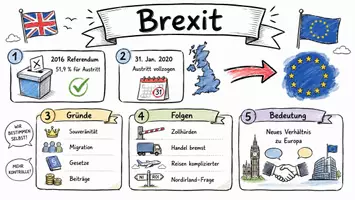 Brexit
1
2016 Referendum
51,9 % für Austritt
2
31. Jan. 2020
Austritt vollzogen
31
WIR
BESTIMMEN
SELBST!
MEHR
KONTROLLE!
3 Gründe
Souveränität
Migration
Gesetze
Beiträge
4 Folgen
Zollhürden
Handel bremst
Reisen komplizierter
Nordirland-Frage
5 Bedeutung
Neues Verhältnis
zu Europa